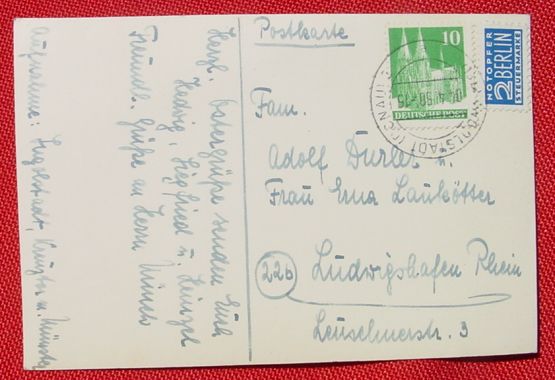 Postkarte
Herzl. Ostergrüße senden Euch
Hedwig, Siegfried u. Heinzel
Freundl. Grüße an Herrn
Aufnahme: Ingolstadt, u. Münster
10
DEUTSCHE POST
NOTOPFER
2 BERLIN
STEUERMARKE
INGOLSTADT
Fam.
Adolf Durler u.
Frau Erna Laukötter
22b
Ludwigshafen Rhein
Leuschnerstr. 3